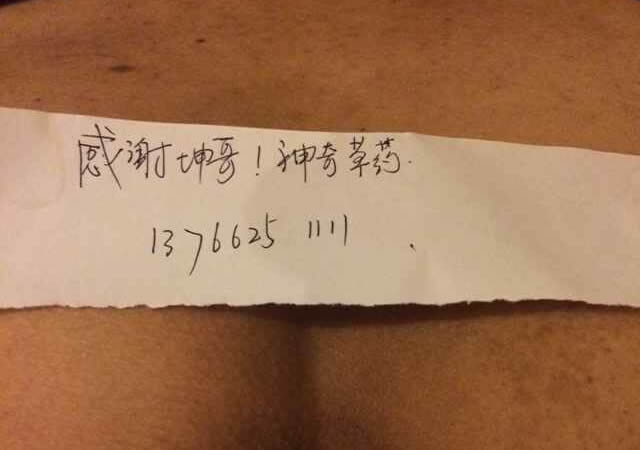 感谢坤哥!神奇草药.
13766251111.